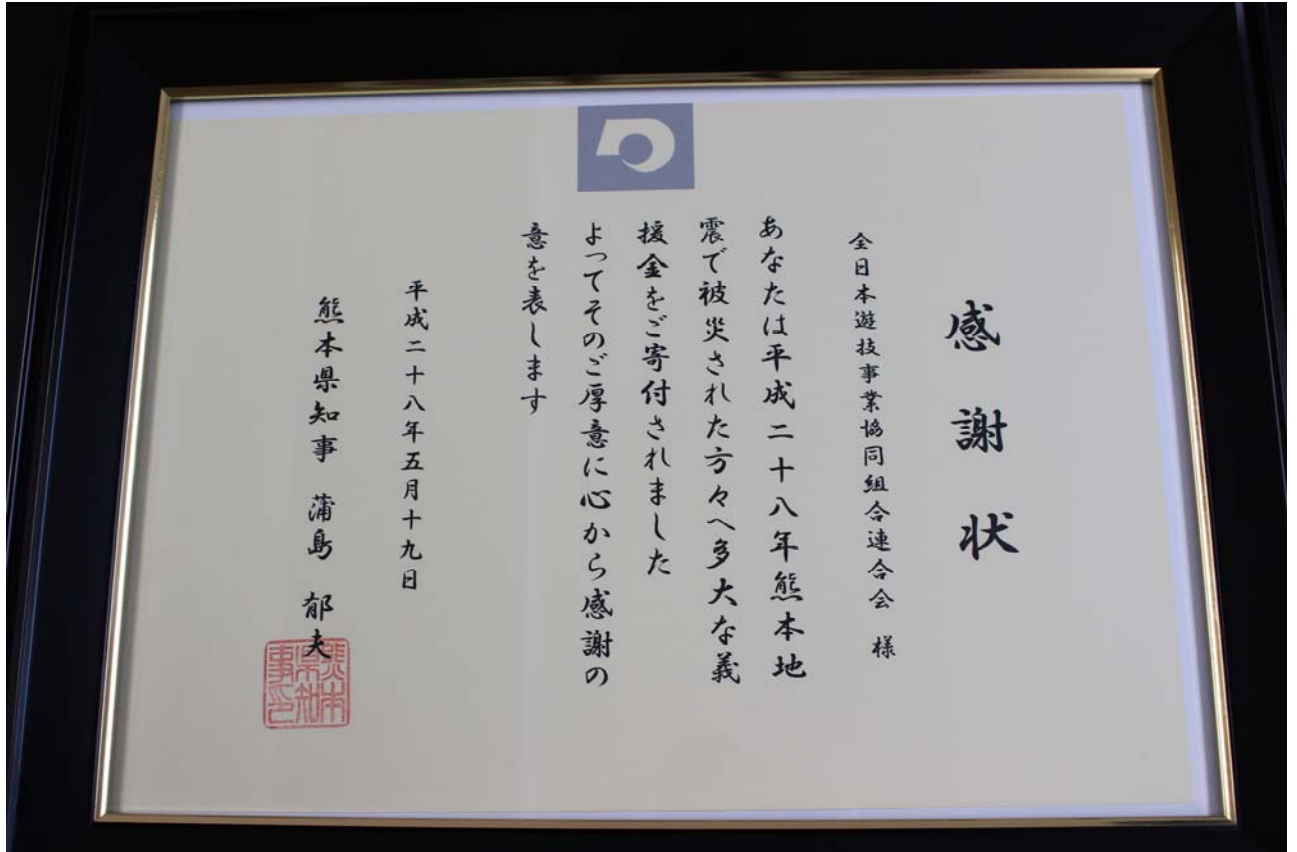 感謝状
全日本遊技事業協同組合連合会 様
あなたは平成二十八年熊本地
震で被災された方々へ多大な義
援金をご寄付されました
よってそのご厚意に心から感謝の
意を表します
平成二十八年五月十九日
熊本県知事 蒲島 郁夫
熊本
県知
事印